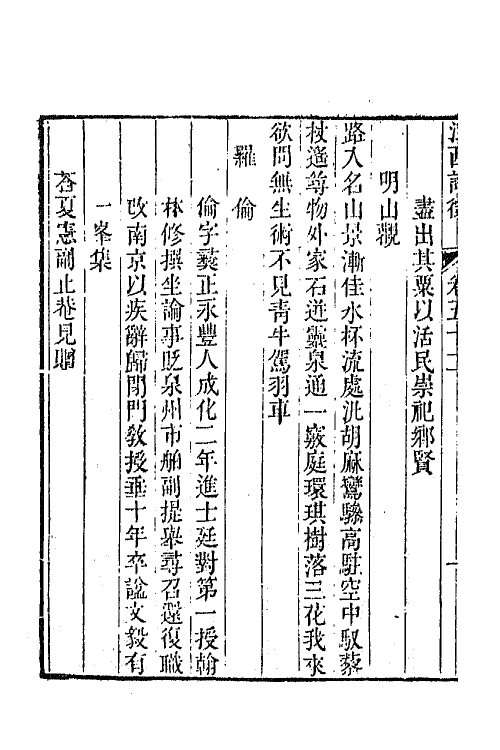 江西詩徵 卷五十二 一
盡出其粟以活民崇祀鄉賢
明山觀
路入名山景漸佳水杯流處泛胡麻鸞驂高駐空中馭藜
杖遙尋物外家石迸靈泉通一竅庭環琪樹落三花我來
欲問無生術不見青牛駕羽車
羅倫
倫字彝正永豐人成化二年進士廷對第一授翰
林修撰坐論事貶泉州市舶副提舉尋召還復職
改南京以疾辭歸閉門敎授垂十年卒諡文毅有
一峯集
答夏憲副止菴見贈